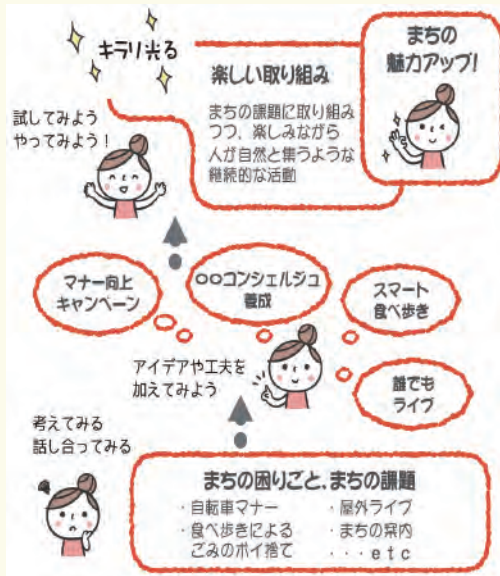 キラリ光る
まちの
魅力アップ!
楽しい取り組み
まちの課題に取り組み
つつ、楽しみながら
人が自然と集うような
継続的な活動
試してみよう
やってみよう！
マナー向上
キャンペーン
○○コンシェルジュ
養成
スマート
食べ歩き
アイデアや工夫を
加えてみよう
誰でも
ライブ
考えてみる
話し合ってみる
まちの困りごと、まちの課題
・自転車マナー
・食べ歩きによる
ごみのポイ捨て
・屋外ライブ
・まちの案内
・・・etc